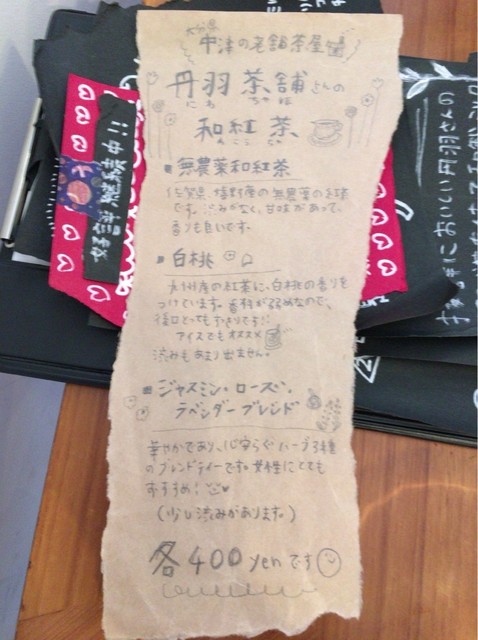 大分県
中津の老舗茶屋
丹羽茶舗さんの
にわ ちゃほ
和紅茶
わこうちゃ
無農薬和紅茶
佐賀県 嬉野産の無農薬の紅茶
です。渋みがなく、甘味があって、
香りも良いです。
白桃
九州産の紅茶に、白桃の香りを
つけています。香料が弱めなので、
後口とってもすっきりです!!
アイスでもオススメ
渋みもあまり出ません。
ジャスミン・ローズ・
ラベンダーブレンド
華やかであり、心安らぐハーブ3種
のブレンドティーです。女性にとても
おすすめ!
(少し渋みがあります。)
各400yenです
好評継続中!!
においしい丹羽さんの